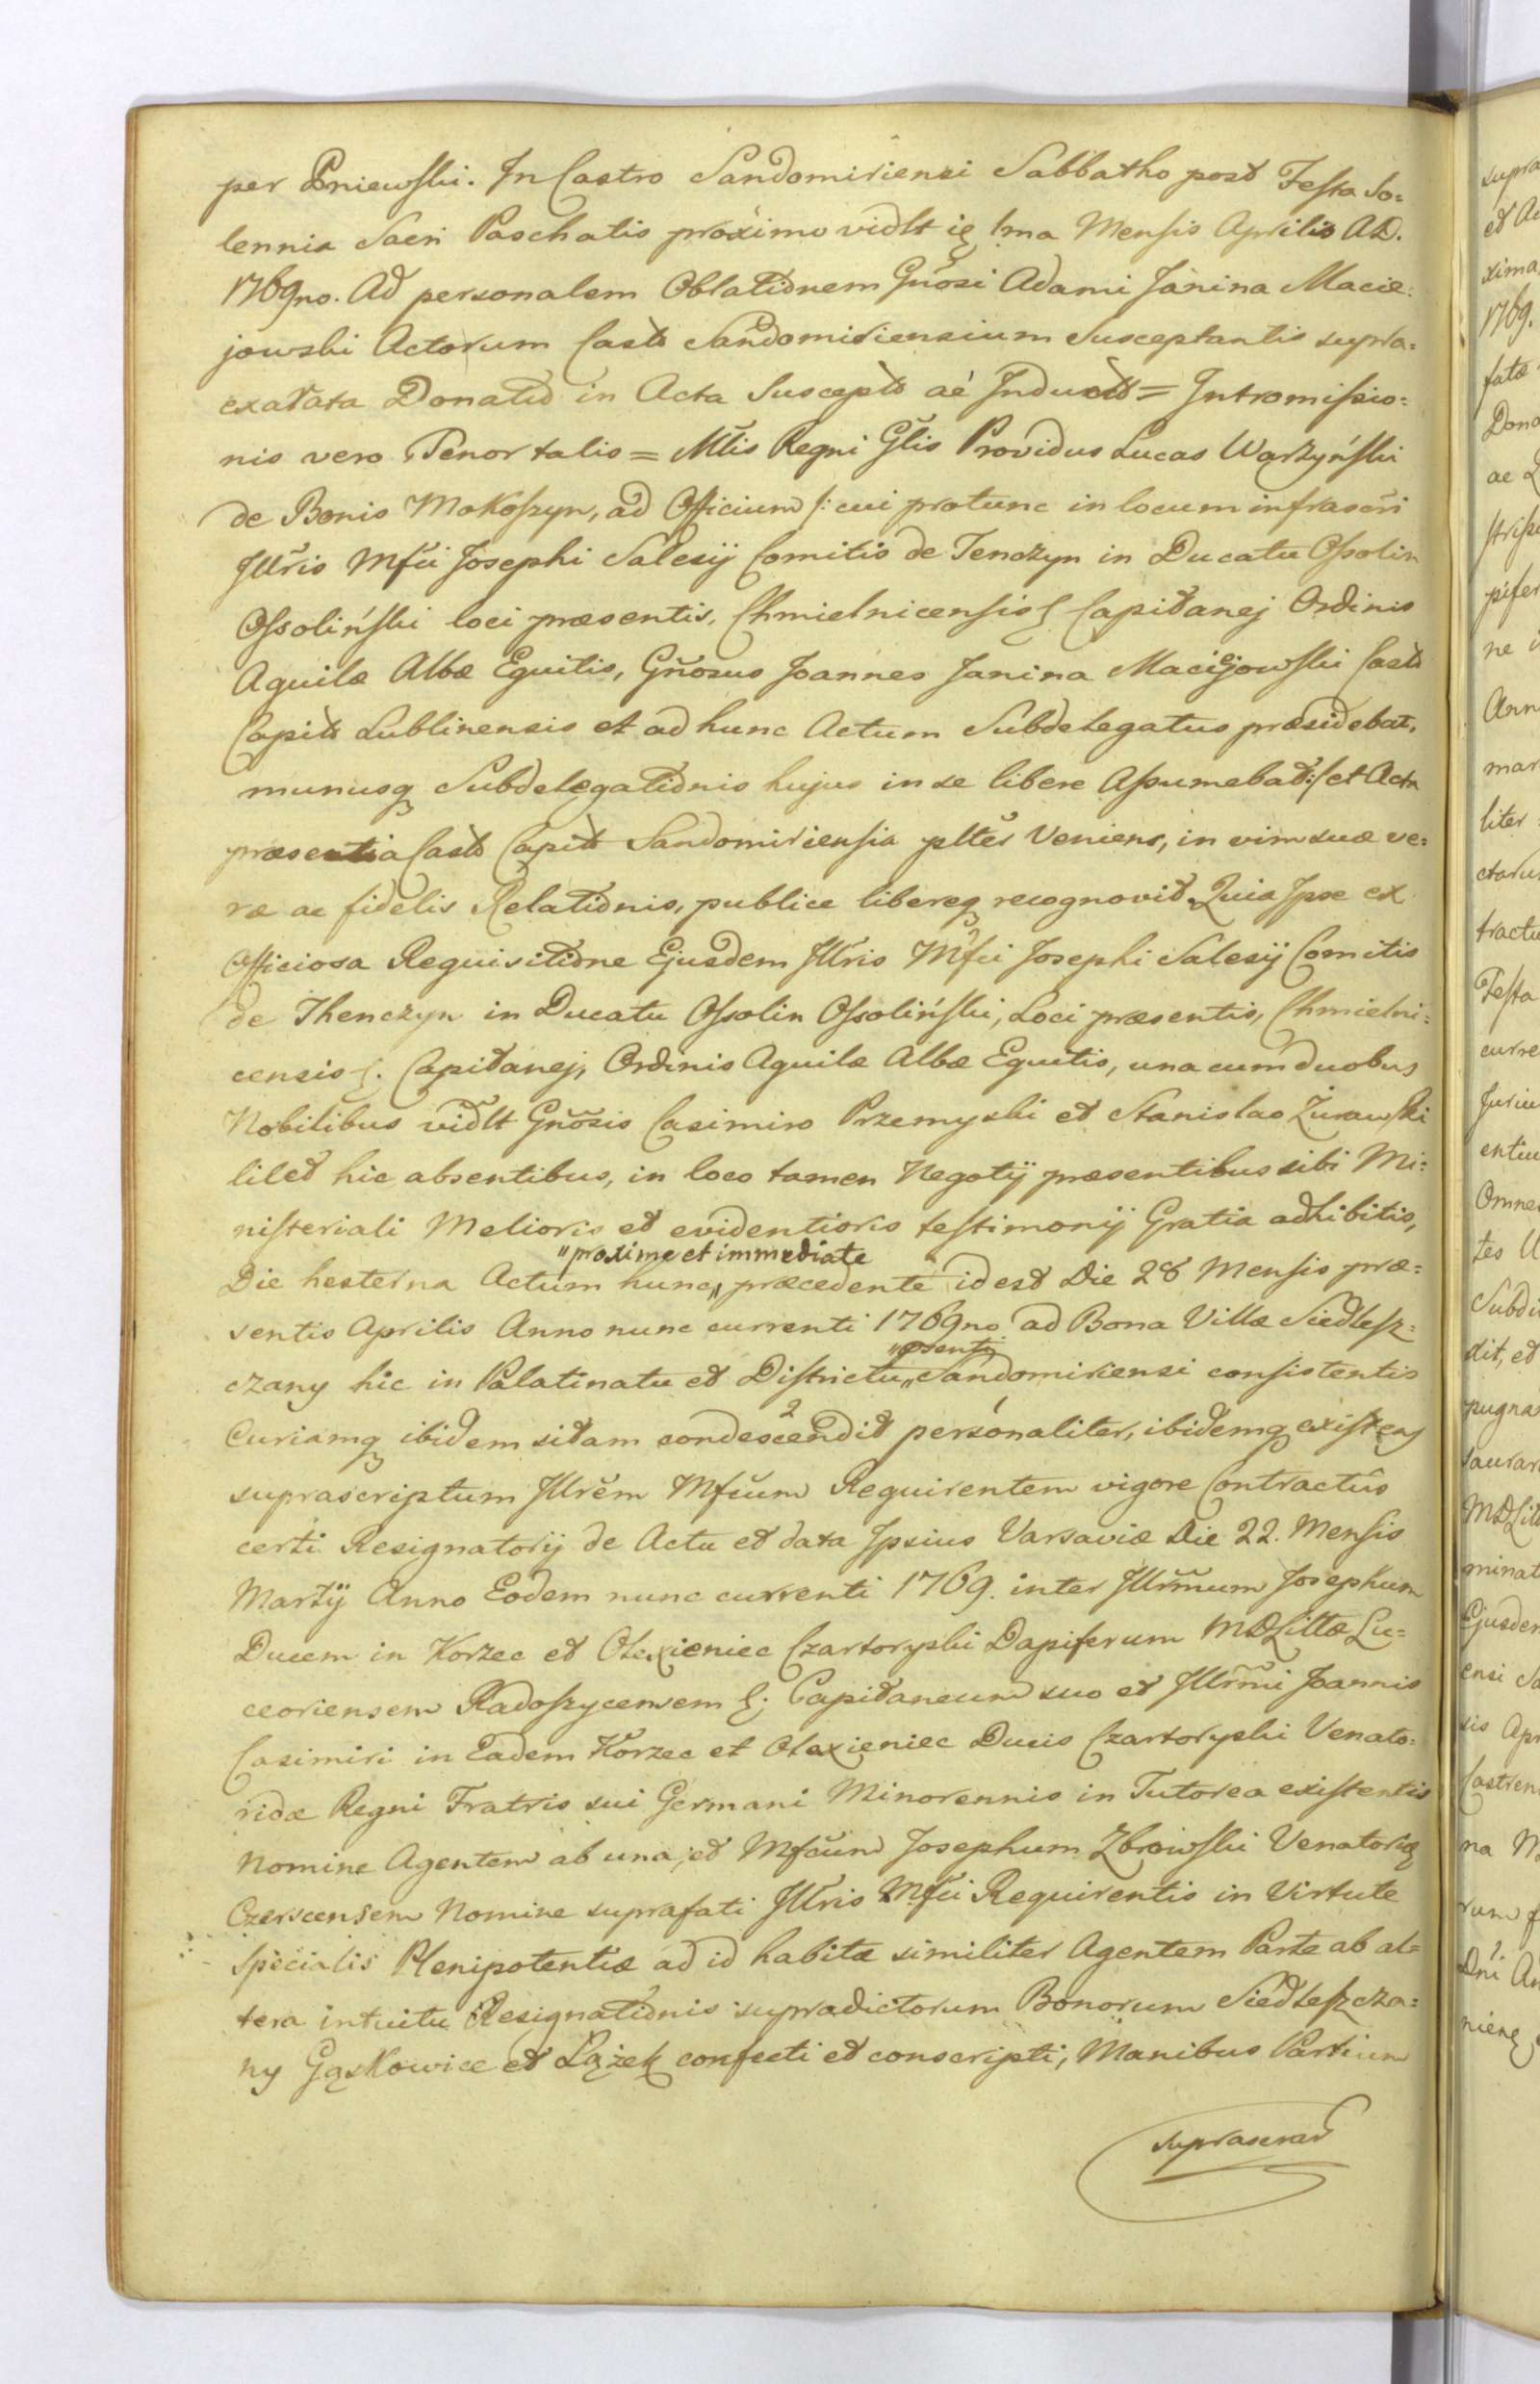 per Pniewski. In Castro Sandomiriensi Sabbatho post Festa So=
lennia Sacri Paschatis proximo vidlt ie 1ma Mensis Aprilis AD.
1769no. Ad personalem Oblationem Gnosi Adami Janina Macie:
jowski Actorum Casts Sandomiriensium Susceptantis supra=
exarata Donatio in Acta Susceptã ac Inducta = Intromissio=
nis vero Tenor talis = Mtlis Regni Glis Providus Lucas Warzyński
de Bonis Mokoszyn, ad Officium /: cui protunc in locum infrascri
Illris Mfci Josephi Salesij Comitis de Tenczyn in Ducatu Ossolin
Ossoliński loci præsentis, Chmielnicensis & Capitanej Ordinis
Aquilæ Albæ Equitis, Gnosus Joannes Janina Maciejowski Casts
Capits Lublinensis et ad hunc Actum Subdelegatus præsidebat,
munusq Subdelegationis hujus in se libere Assumebat :/ et Acta
præsentia Casts Capits Sandomiriensia pltěr Veniens, in vim suæ ve=
ræ ac fidelis Relationis, publice libereq recognovit. Quia Ipse ex
Officiosa Requisitione Ejusdem Illris Mfci Josephi Salesij Comitis
de Thenczyn in Ducatu Ossolin Ossoliński, Loci præsentis, Chmielni=
censis &. Capitanej, Ordinis Aquilæ Albæ Equitis, una cum duobus
Nobilibus vidlt Gnosis Casimiro Przemyski et Stanislao Żurawski
licet hic absentibus, in loco tamen Negotij præsentibus sibi Mi=
nisteriali Melioris et evidentioris testimonij Gratia adhibitis,
"proxime et immediate
Die hesterna Actum hunc " præcedente id est Die 28 Mensis præ=
sentis Aprilis Anno nunc currenti 1769no ad Bona Villæ Siedlesz=
"præsenti
czany hic in Palatinatu et Districtu " Sandomiriensi consistentis
Curiamq ibidem sitam condescendit personaliter, ibidemq existens
suprascriptum Illrem Mfcum Requirentem vigore Contractus
certi Resignatorij de Actu et data Ipsius Varsaviæ Die 22. Mensis
Martij Anno Eodem nunc currenti 1769. inter Illrmum Josephum
Ducem in Korzec et Olexieniec Czartoryski Dapiferum MDLittæ Lu=
ceoriensem Radoszycensem &. Capitaneum suo et Illrmi Joannis
Casimiri in Eadem Korzec et Olexieniec Ducis Czartoryski Venato=
ridæ Regni Fratris sui Germani Minorennis in Tutorea existentis
Nomine Agentem ab una, et Mfcum Josephum Zbroiwski Venatorem
Czerscensem Nomine suprafati Illris Mfci Requirentis in Virtute
specialis Plenipotentiæ ad id habitæ similiter Agentem Parte ab al=
tera intuitu Resignationis supradictorum Bonorum Siedleszcza=
ny Gąskowice et Lążek confecti et conscripti, Manibus Partium
suprascrar